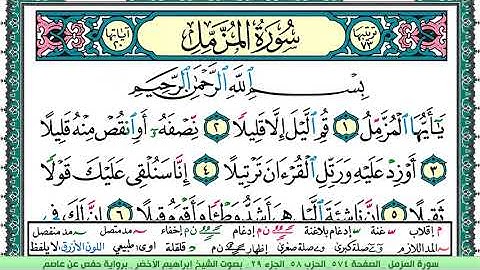 ترتيبها ٧٣
سُورَةُ الْمُزَّمِّلِ
آياتها ٢٠
بِسْمِ اللَّهِ الرَّحْمَٰنِ الرَّحِيمِ
يَٰٓأَيُّهَا ٱلْمُزَّمِّلُ ١ قُمِ ٱلَّيْلَ إِلَّا قَلِيلًا ٢ نِّصْفَهُۥٓ أَوِ ٱنقُصْ مِنْهُ قَلِيلًا
٣ أَوْ زِدْ عَلَيْهِ وَرَتِّلِ ٱلْقُرْءَانَ تَرْتِيلًا ٤ إِنَّا سَنُلْقِى عَلَيْكَ قَوْلًا
ثَقِيلًا ٥ إِنَّ نَاشِئَةَ ٱلَّيْلِ هِىَ أَشَدُّ وَطْـًٔا وَأَقْوَمُ قِيلًا ٦ إِنَّ لَكَ فِى
م إقلاب غنة إدغام بلاغنة ن م إدغام إخفاء مدمتصل مدمنفصل
المد اللازم صلة كبرى صلة صغرى إظهار ن م قلقلة اوى: طبيعي اللون الأزرق: لا يلفظ
سورة المزمل . الصفحة ٥٧٤ الحزب ٥٨ الجزء ٢٩ . بصوت الشيخ ابراهيم الأخضر . برواية حفص عن عاصم